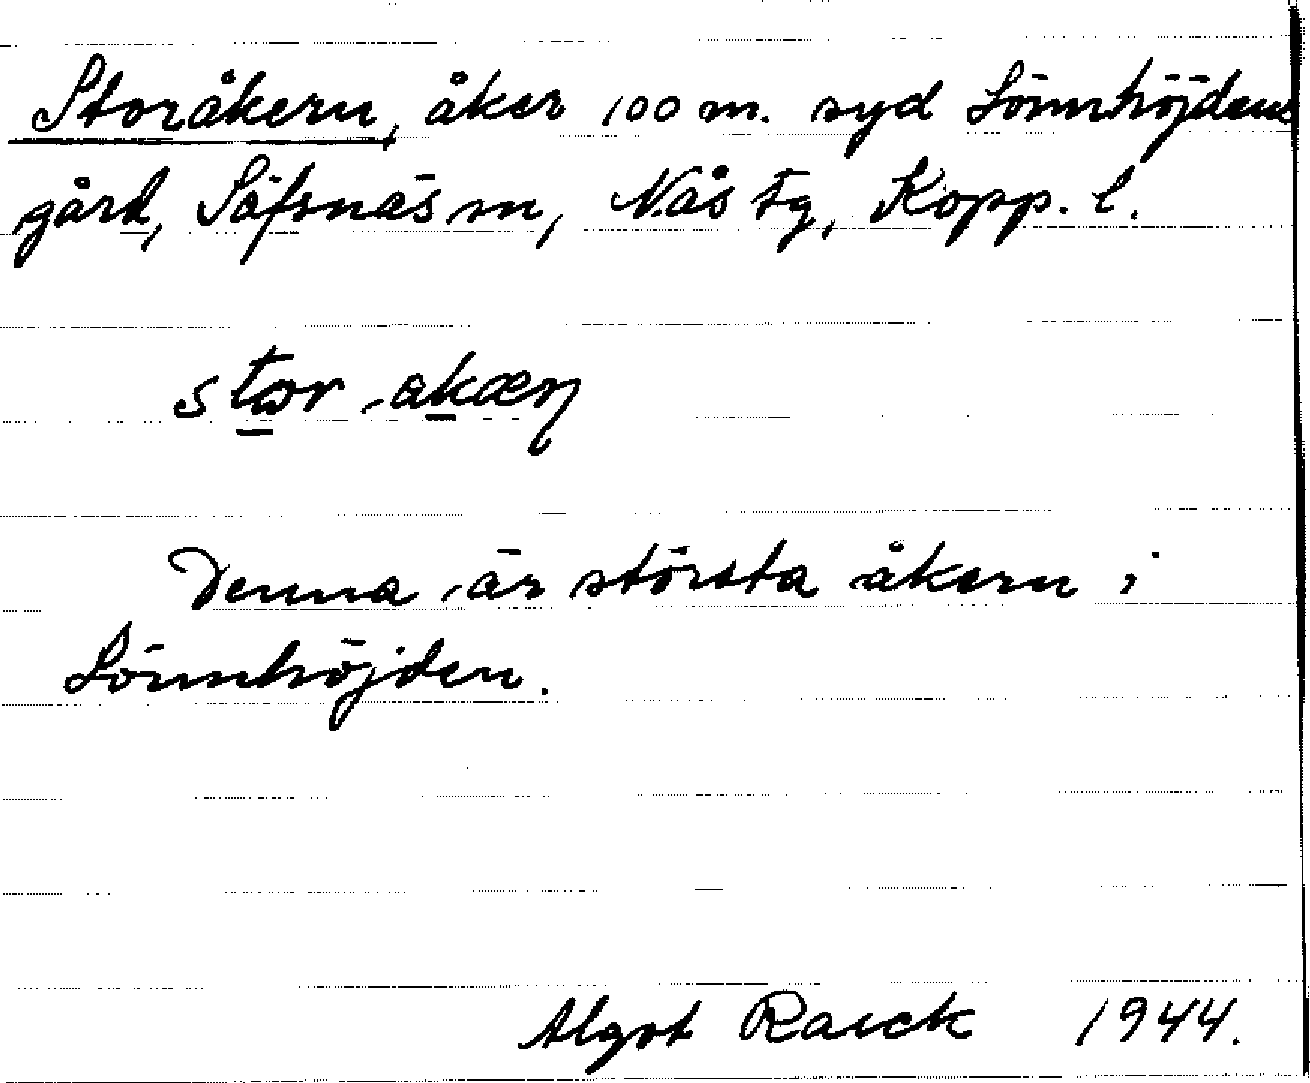 Storåkern, åker 100 m. syd Lönnhöjdens
gård, Säfsnäs sn, Nås tg, Kopp. l.
Denna är största åkern i
Lönnhöjden.
Algot Raeck 1944.